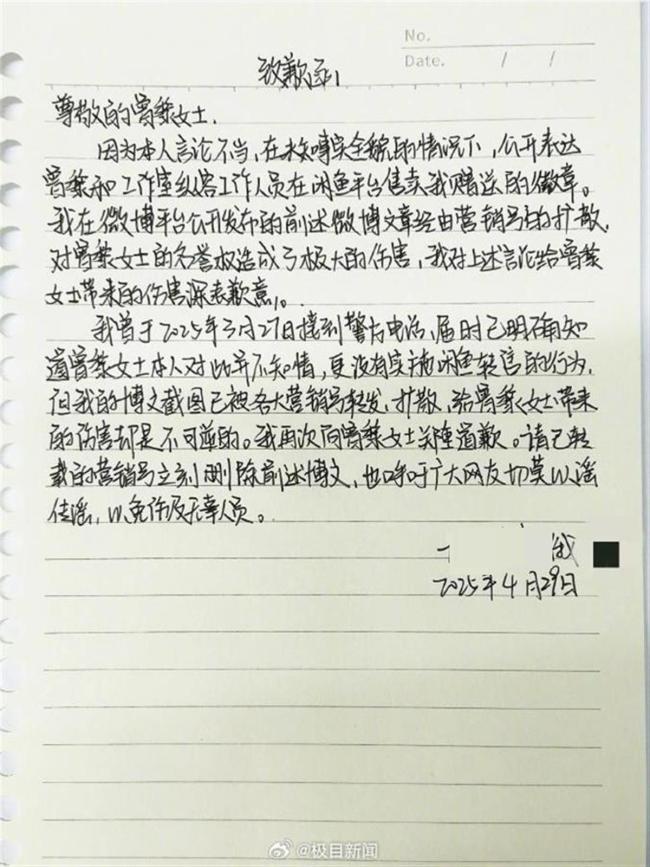 No.
Date. / /
致歉函
尊敬的曾黎女士.
因为本人言论不当,在未了解完全貌的情况下,公开表达
曾黎和工作室纵容工作人员在闲鱼平台售卖我赠送的徽章。
我在微博平台公开发布的前述微博文章经由营销号的扩散,
对曾黎女士的名誉权造成了极大的伤害,我对上述言论给曾黎
女士带来的伤害深表歉意。
我曾于2025年3月27日接到警方电话,届时已明确知
道曾黎女士本人对此并不知情,更没有实施闲鱼转售的行为,
但我的博文截图已被各大营销号转发,扩散,给曾黎女士带来
的伤害却是不可逆的。我再次向曾黎女士郑重道歉。请已转
载的营销号立刻删除前述博文,也呼吁广大网友切莫以谣
传谣,以免伤及无辜人员。
2025年4月29日
@极目新闻